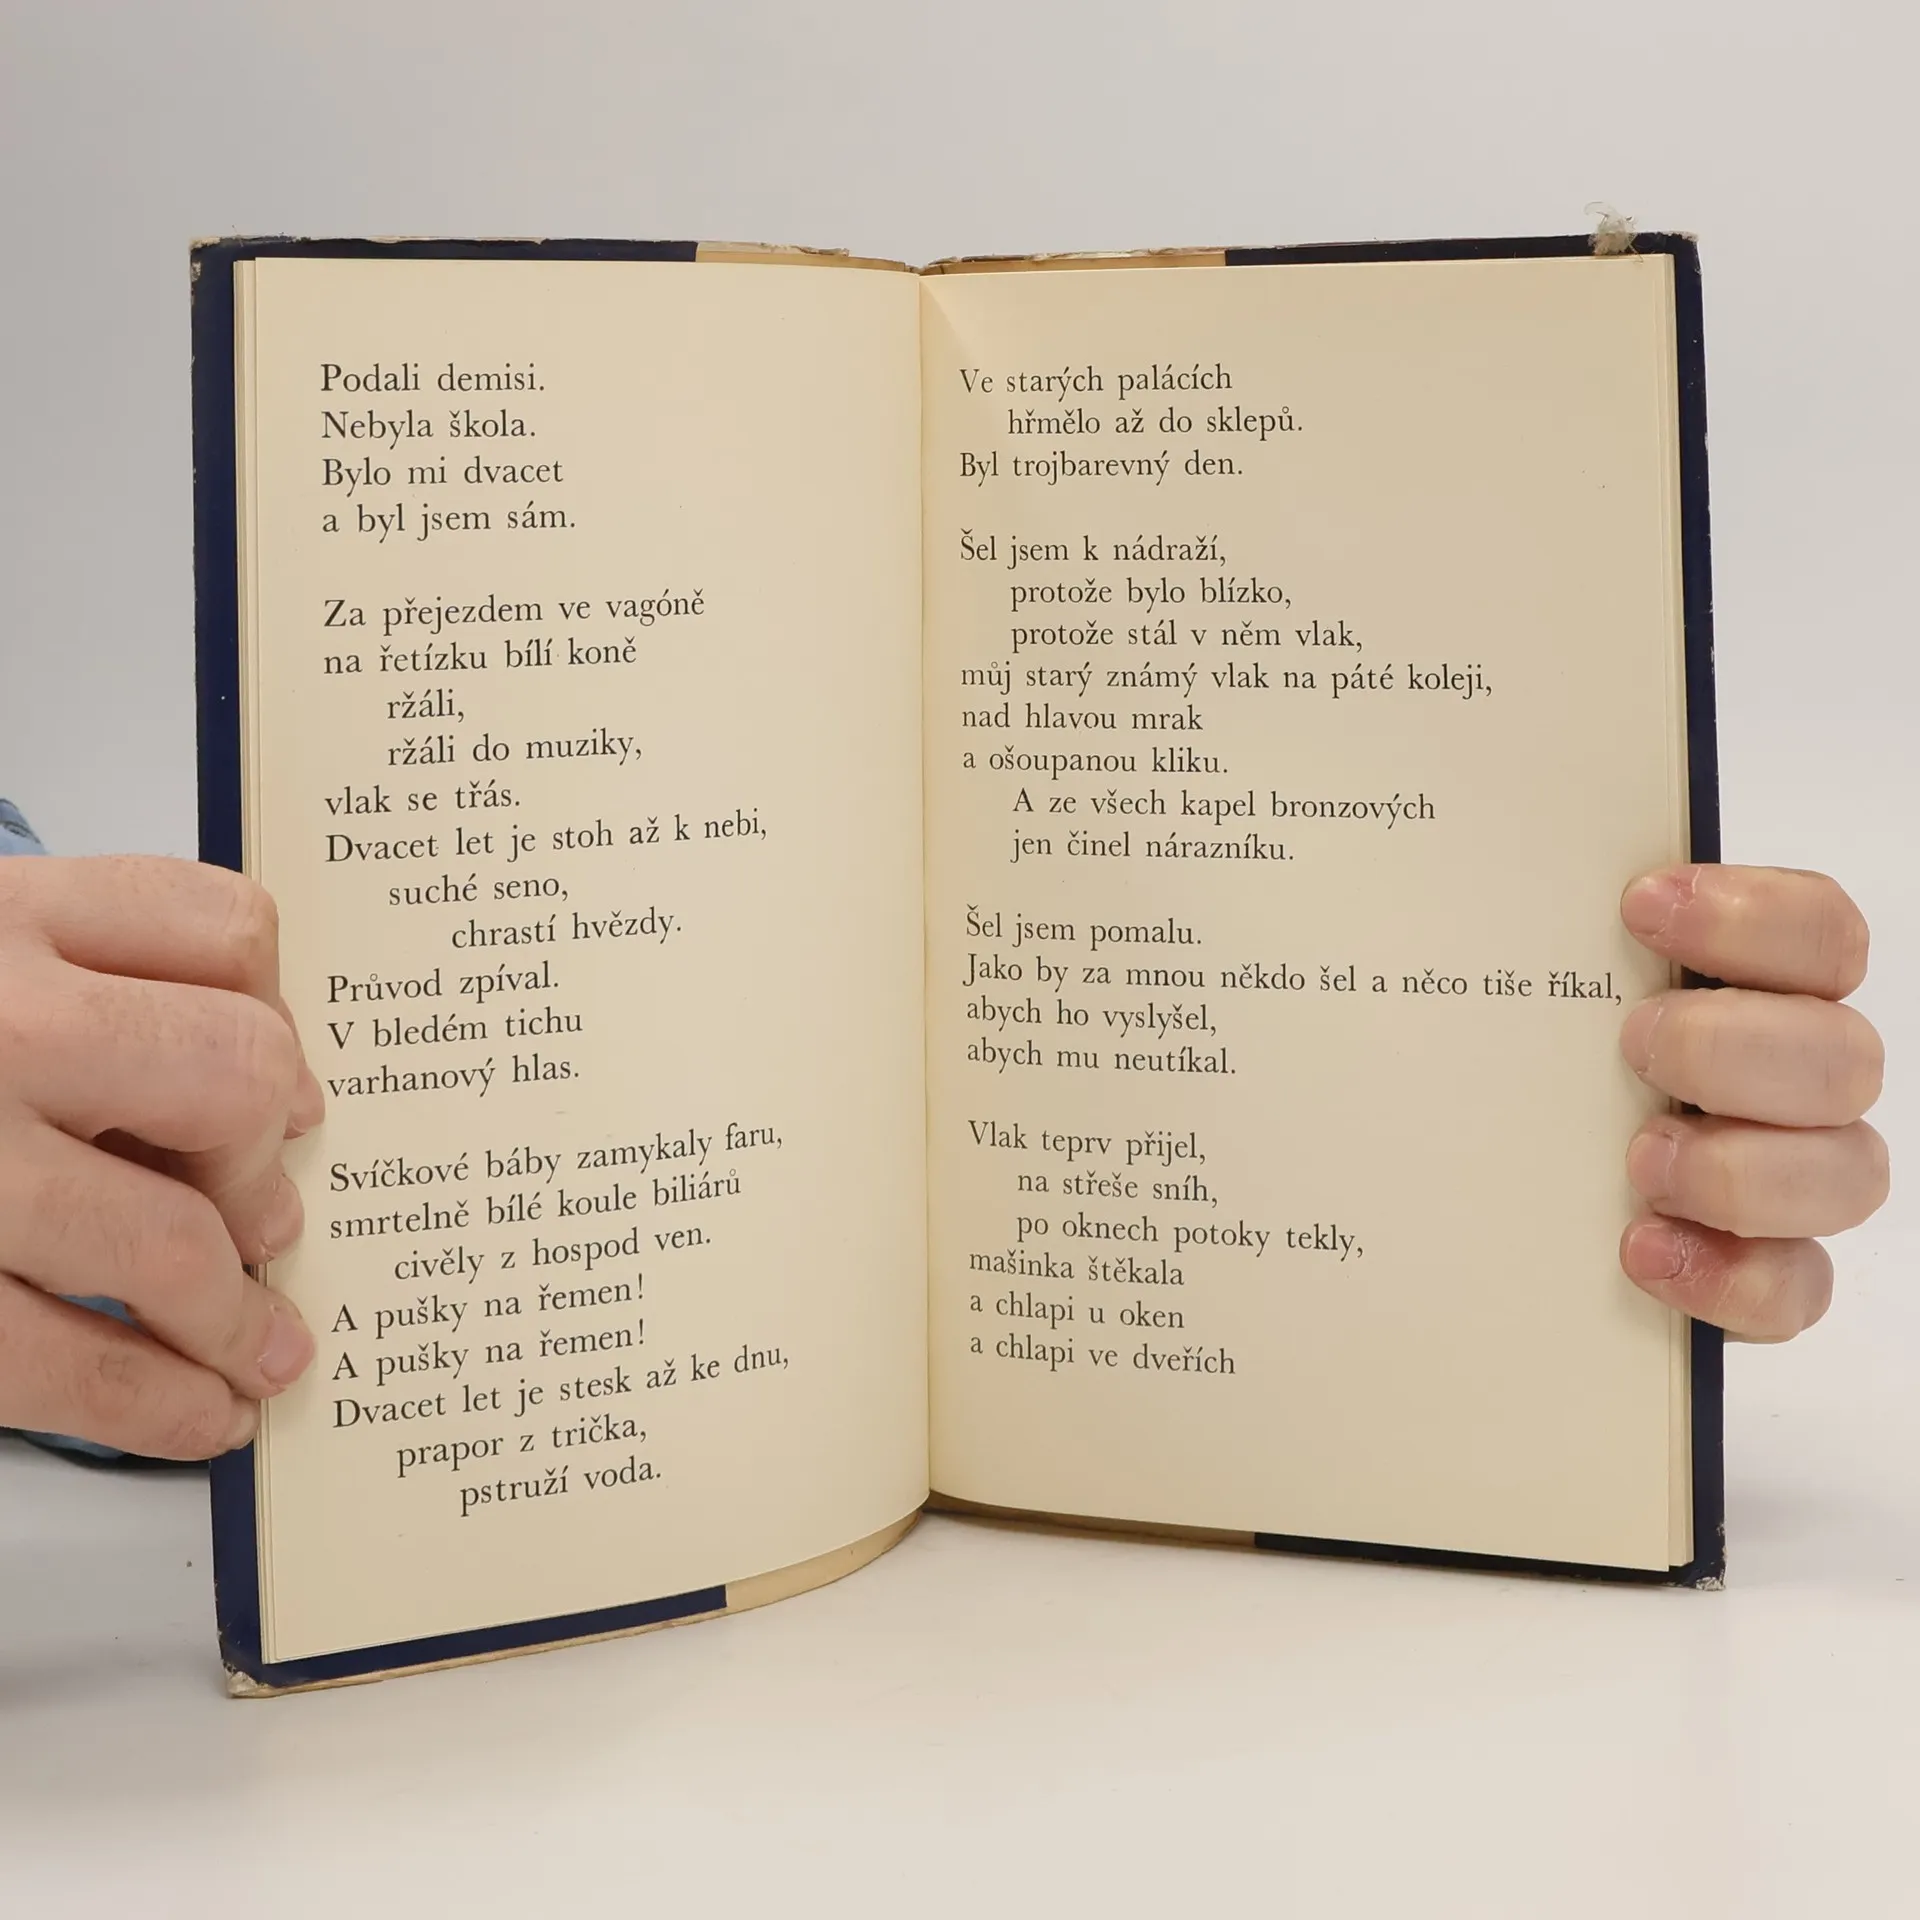 Podali demisi.
Nebyla škola.
Bylo mi dvacet
a byl jsem sám.
Za přejezdem ve vagóně
na řetízku bílí koně
ržáli,
ržáli do muziky,
vlak se třás.
Dvacet let je stoh až k nebi,
suché seno,
chrastí hvězdy.
Průvod zpíval.
V bledém tichu
varhanový hlas.
Svíčkové báby zamykaly faru,
smrtelně bílé koule biliárů
civěly z hospod ven.
A pušky na řemen!
A pušky na řemen!
Dvacet let je stesk až ke dnu,
prapor z trička,
pstruží voda.
Ve starých palácích
hřmělo až do sklepů.
Byl trojbarevný den.
Šel jsem k nádraží,
protože bylo blízko,
protože stál v něm vlak,
můj starý známý vlak na páté koleji,
nad hlavou mrak
a ošoupanou kliku.
A ze všech kapel bronzových
jen činel nárazníku.
Šel jsem pomalu.
Jako by za mnou někdo šel a něco tiše říkal,
abych ho vyslyšel,
abych mu neutíkal.
Vlak teprv přijel,
na střeše sníh,
po oknech potoky tekly,
mašinka štěkala
a chlapi u oken
a chlapi ve dveřích